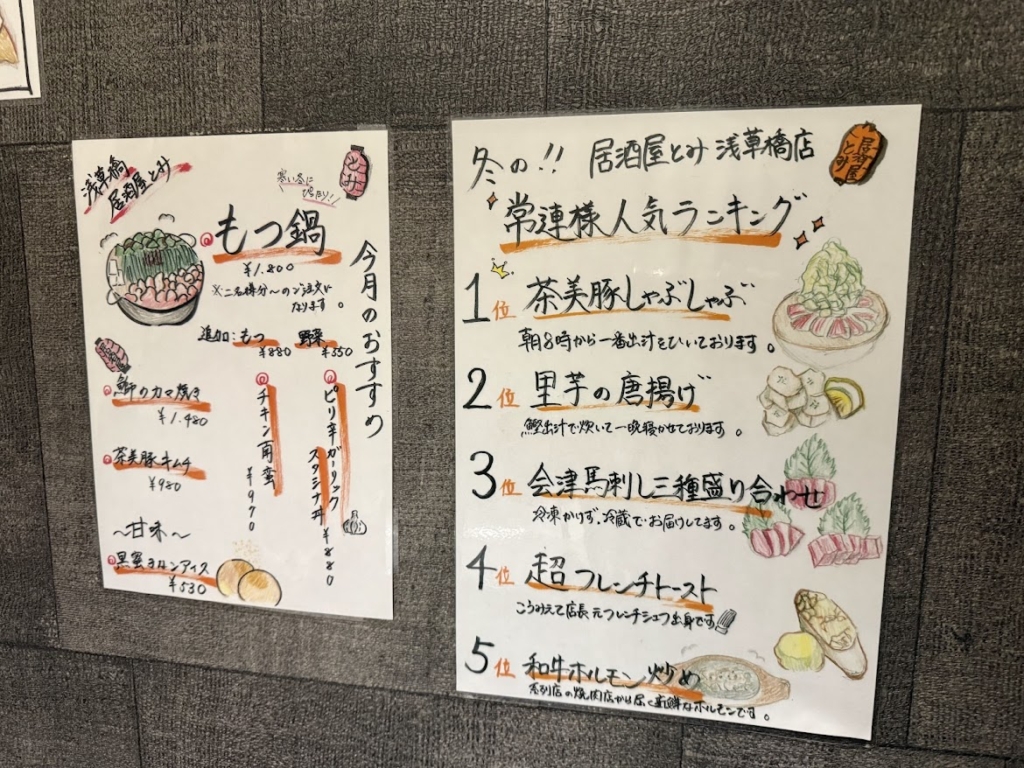 浅草橋
居酒屋とみ
寒い冬に
ぴったり!!
とみ
今月のおすすめ
もつ鍋
¥1.800
※二名様分〜のご注文に
なります。
追加:もつ 野菜
¥880 ¥550
鰤のカマ焼き
¥1.480
茶美豚キムチ
¥980
チキン南蛮 ¥970
ピリ辛ガーリック
スタミナ丼 ¥880
〜甘味〜
黒蜜きなアイス
¥530
冬の!! 居酒屋とみ 浅草橋店
居酒屋
とみ
常連様人気ランキング
1位 茶美豚しゃぶしゃぶ
朝8時から一番出汁をひいております。
2位 里芋の唐揚げ
鰹出汁で炊いて一晩寝かせております。
3位 会津馬刺し三種盛り合わせ
冷凍かけず、冷蔵でお届けしてます。
4位 超フレンチトースト
こうみえて店長元フレンチシェフ出身です
5位 和牛ホルモン炒め
系列店の焼肉店から届く新鮮なホルモンです。